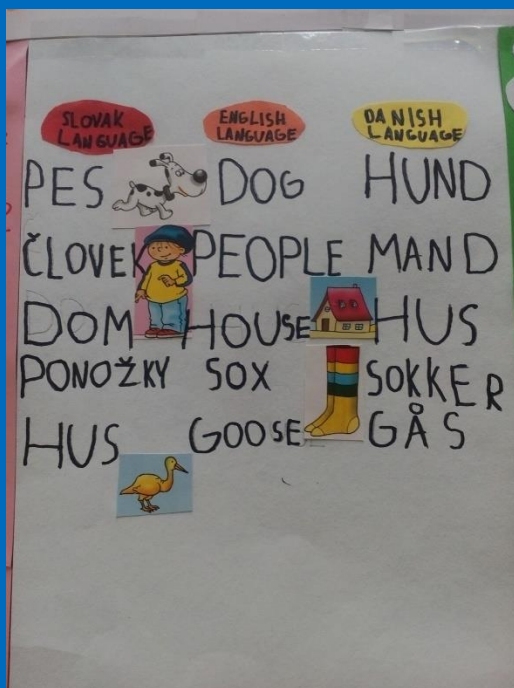 SLOVAK LANGUAGE ENGLISH LANGUAGE DANISH LANGUAGE
PES DOG HUND
ČLOVEK PEOPLE MAND
DOM HOUSE HUS
PONOŽKY SOX SOKKER
HUS GOOSE GÅS